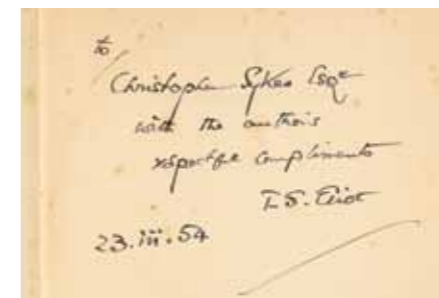 to
Christopher Sykes Esqre
with the author's
respectful compliments
T. S. Eliot
23.iii.54